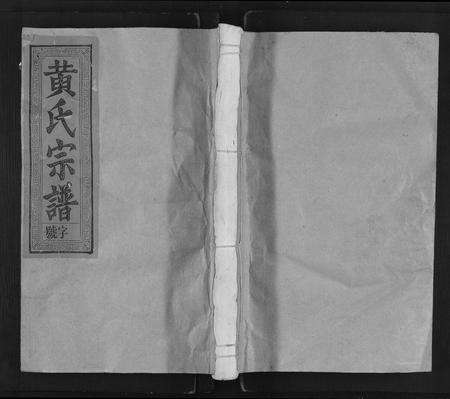 黃氏宗譜
字號